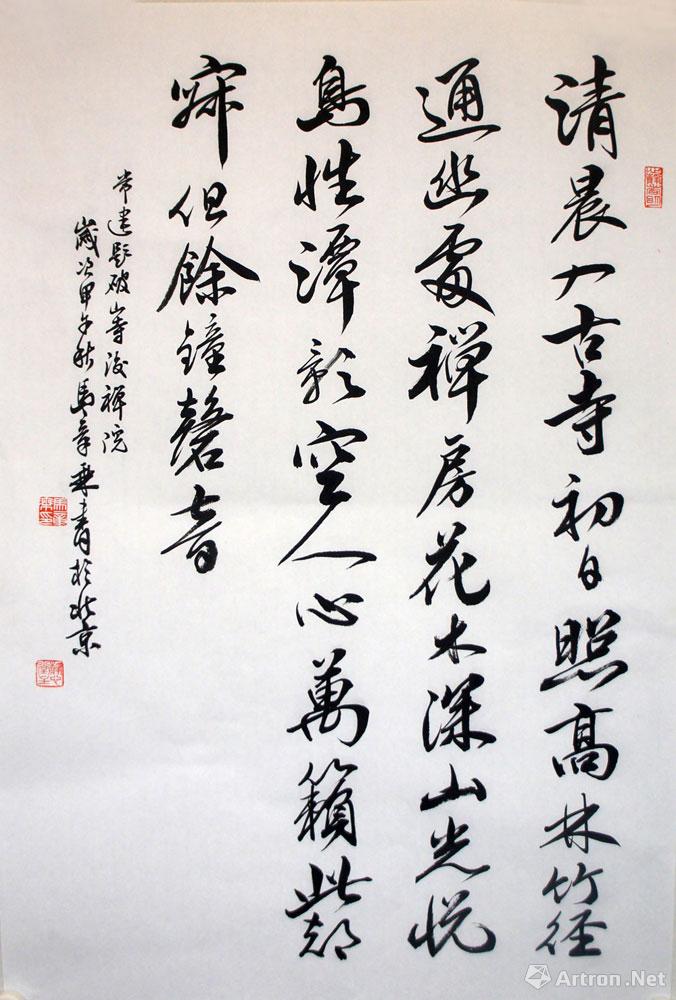 清晨入古寺初日照高林竹径
通幽處禅房花木深山光悦
鳥性潭影空人心萬籟此都
寂但餘鐘磬音
常建題破山寺後禅院
歲次甲午秋馬章乘書於北京
Artron.Net